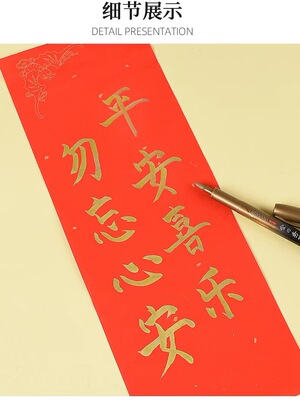 细节展示
DETAIL PRESENTATION
平安喜乐
勿忘心安